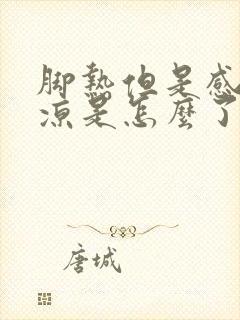 脚熱但是感
凉是怎麼了
唐城